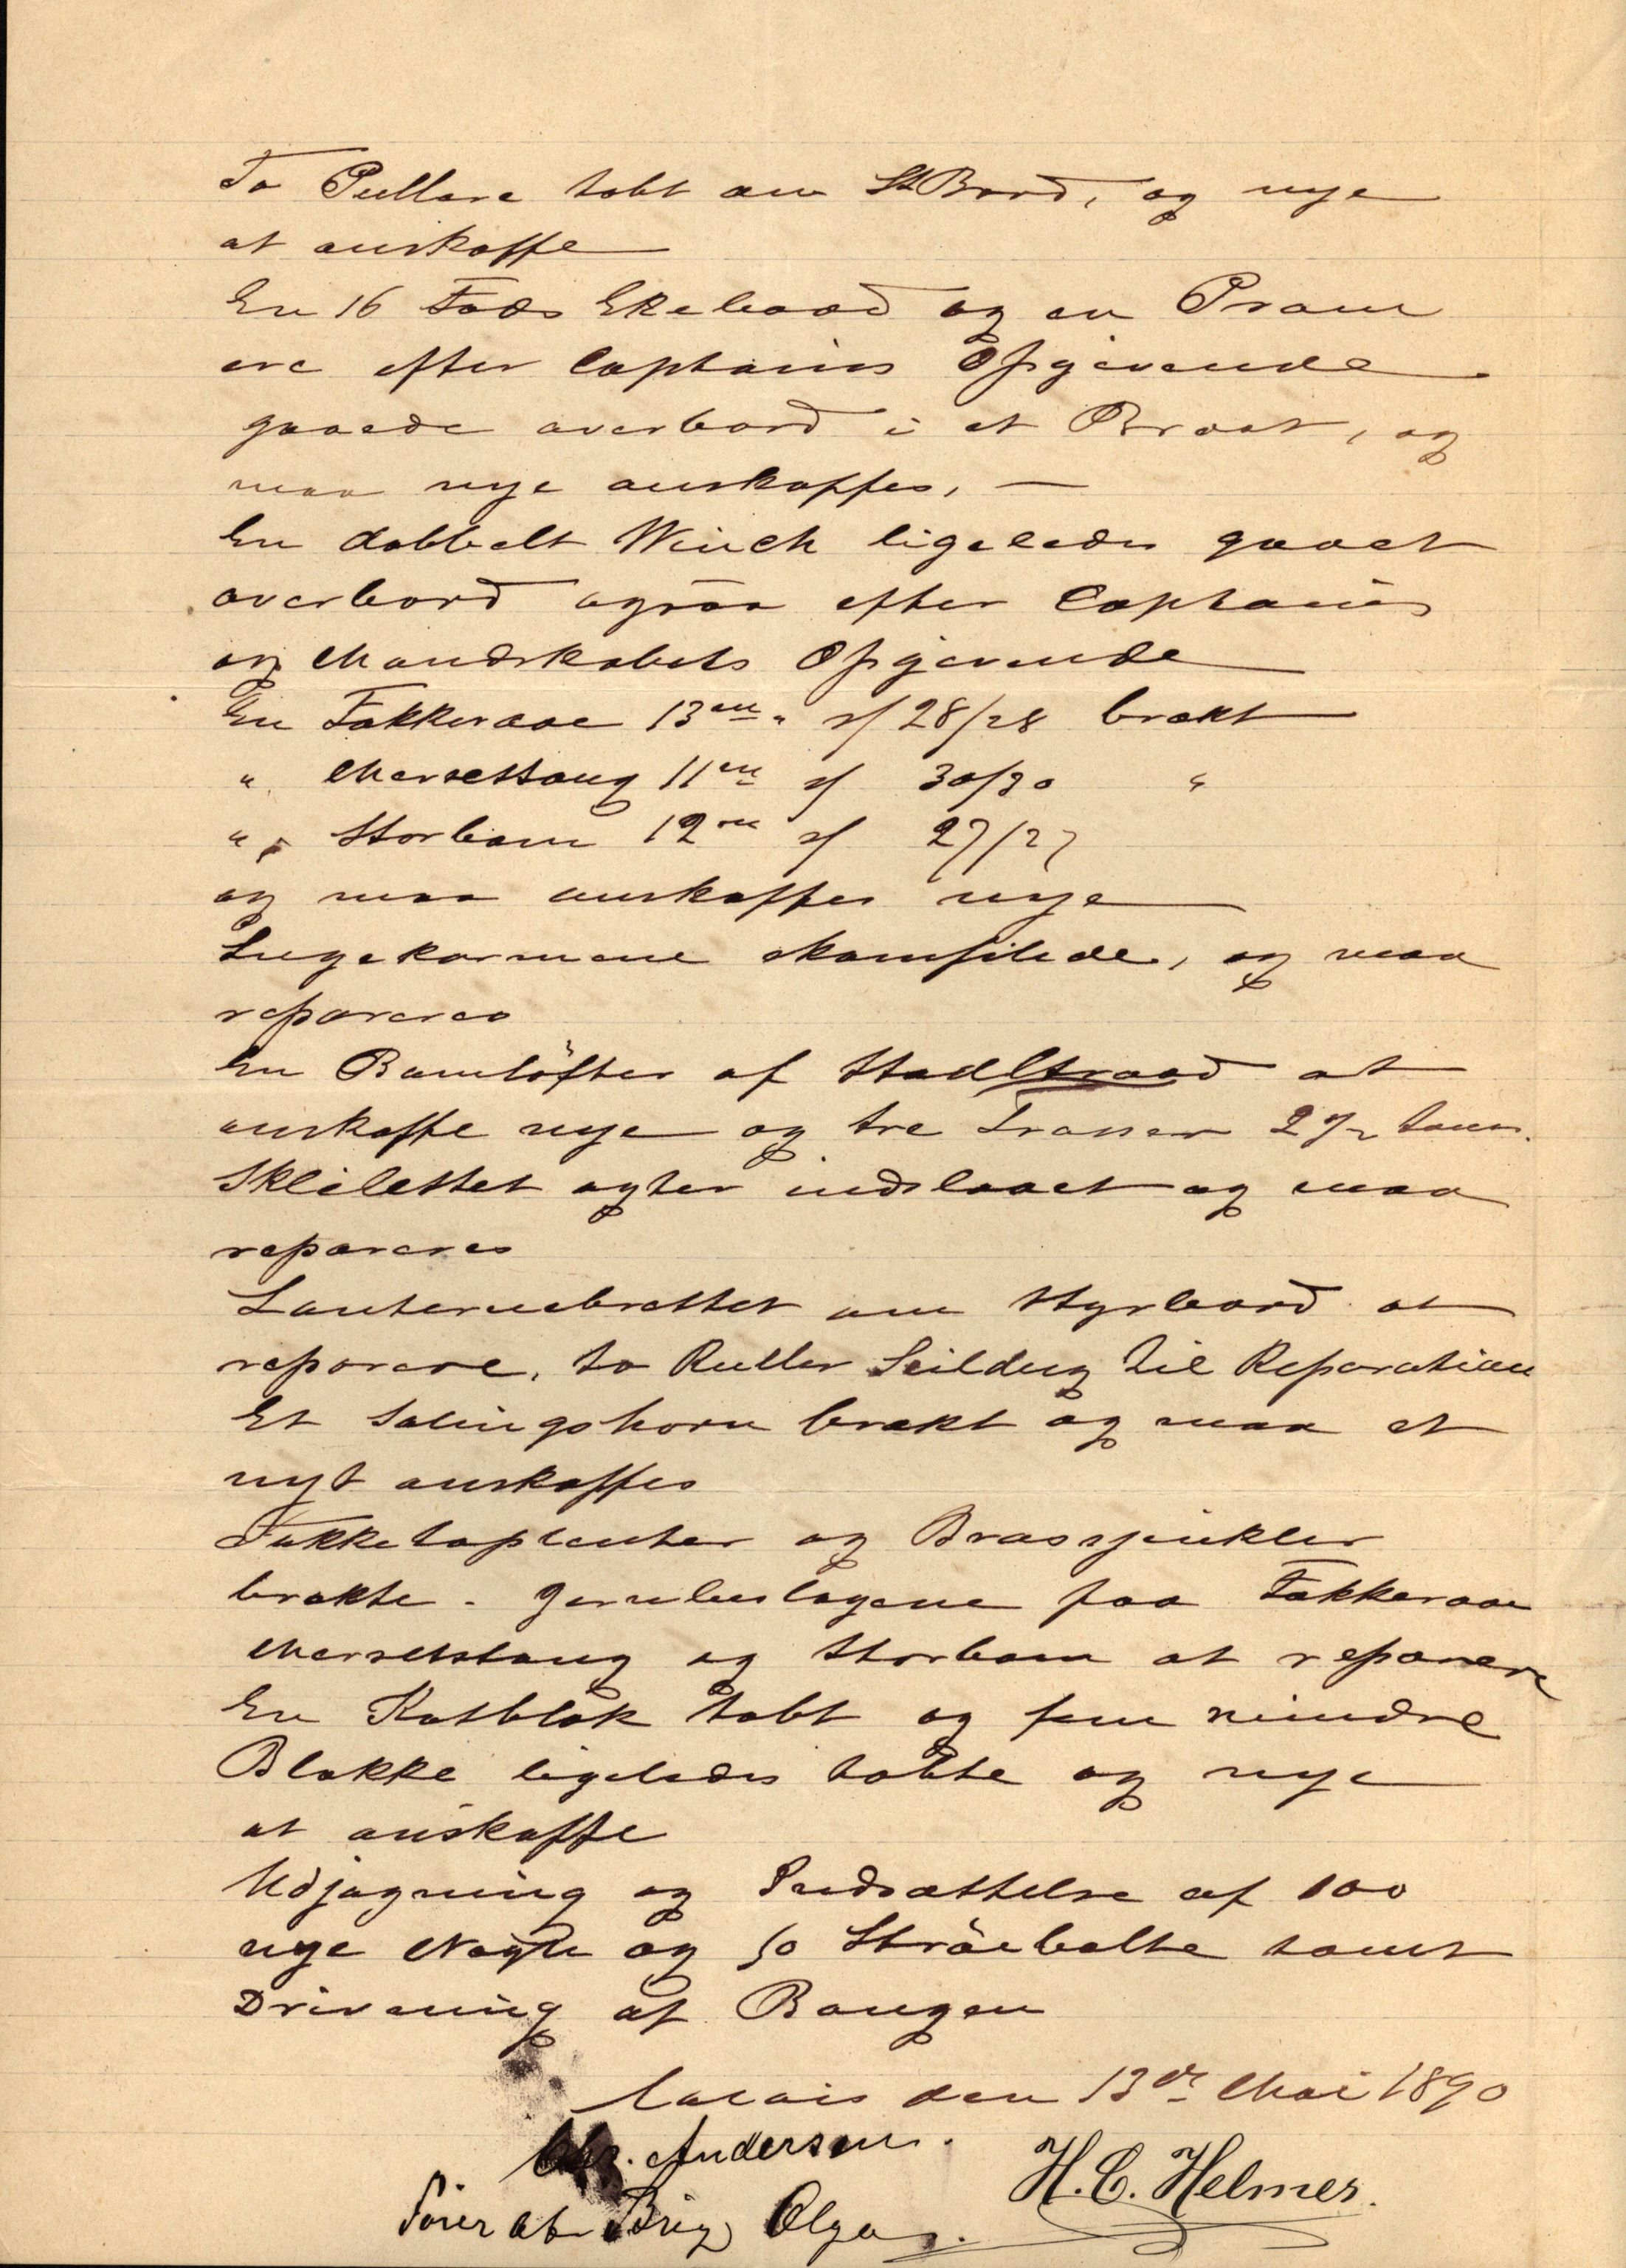 To Pullere tabt om St Bord, og nye
at anskaffe
En 16 Fods Ekebaad og en Pram
ere efter Captains Opgivende
gaaede overbord i et Braat, og
maa nye anskaffes, —
En dobbelt Winch ligeledes gaaet
overbord ogsaa efter Captains
og Mandskabets Opgivende
En Fokkeraae 13 m " 28/28 brækt
" Mersestang 11 m 30/30 "
" Storbom 12 m 27/27
og maa anskaffes nye
Lugekarmene skamfilede, og maa
repareres
En Bomløfter af Staaltraad at
anskaffe nye og tre Trosser 2½ tom.
Skeilettet agter indslaaet og maa
repareres
Lanternebrettet om Styrbord at
reparere, to Ruller Seildug til Reparation
Et Salingshorn brækt og maa et
nyt anskaffes
Fokketoplenter og Brasskinkler
brækte - Jernbeslagene paa Fokkeraae
Mersestang og Storbom at reparere
En Katblok tabt og fem mindre
Blokke ligeledes tabte og nye
at anskaffe
Udjagning og Indsættelse af 100
nye Nagle og 50 Skröebolte samt
Drivening af Bougen
Calais den 13de Mai 1890
Chr. Andersen. H. C. Helmer.
Förer af Brig Olga.